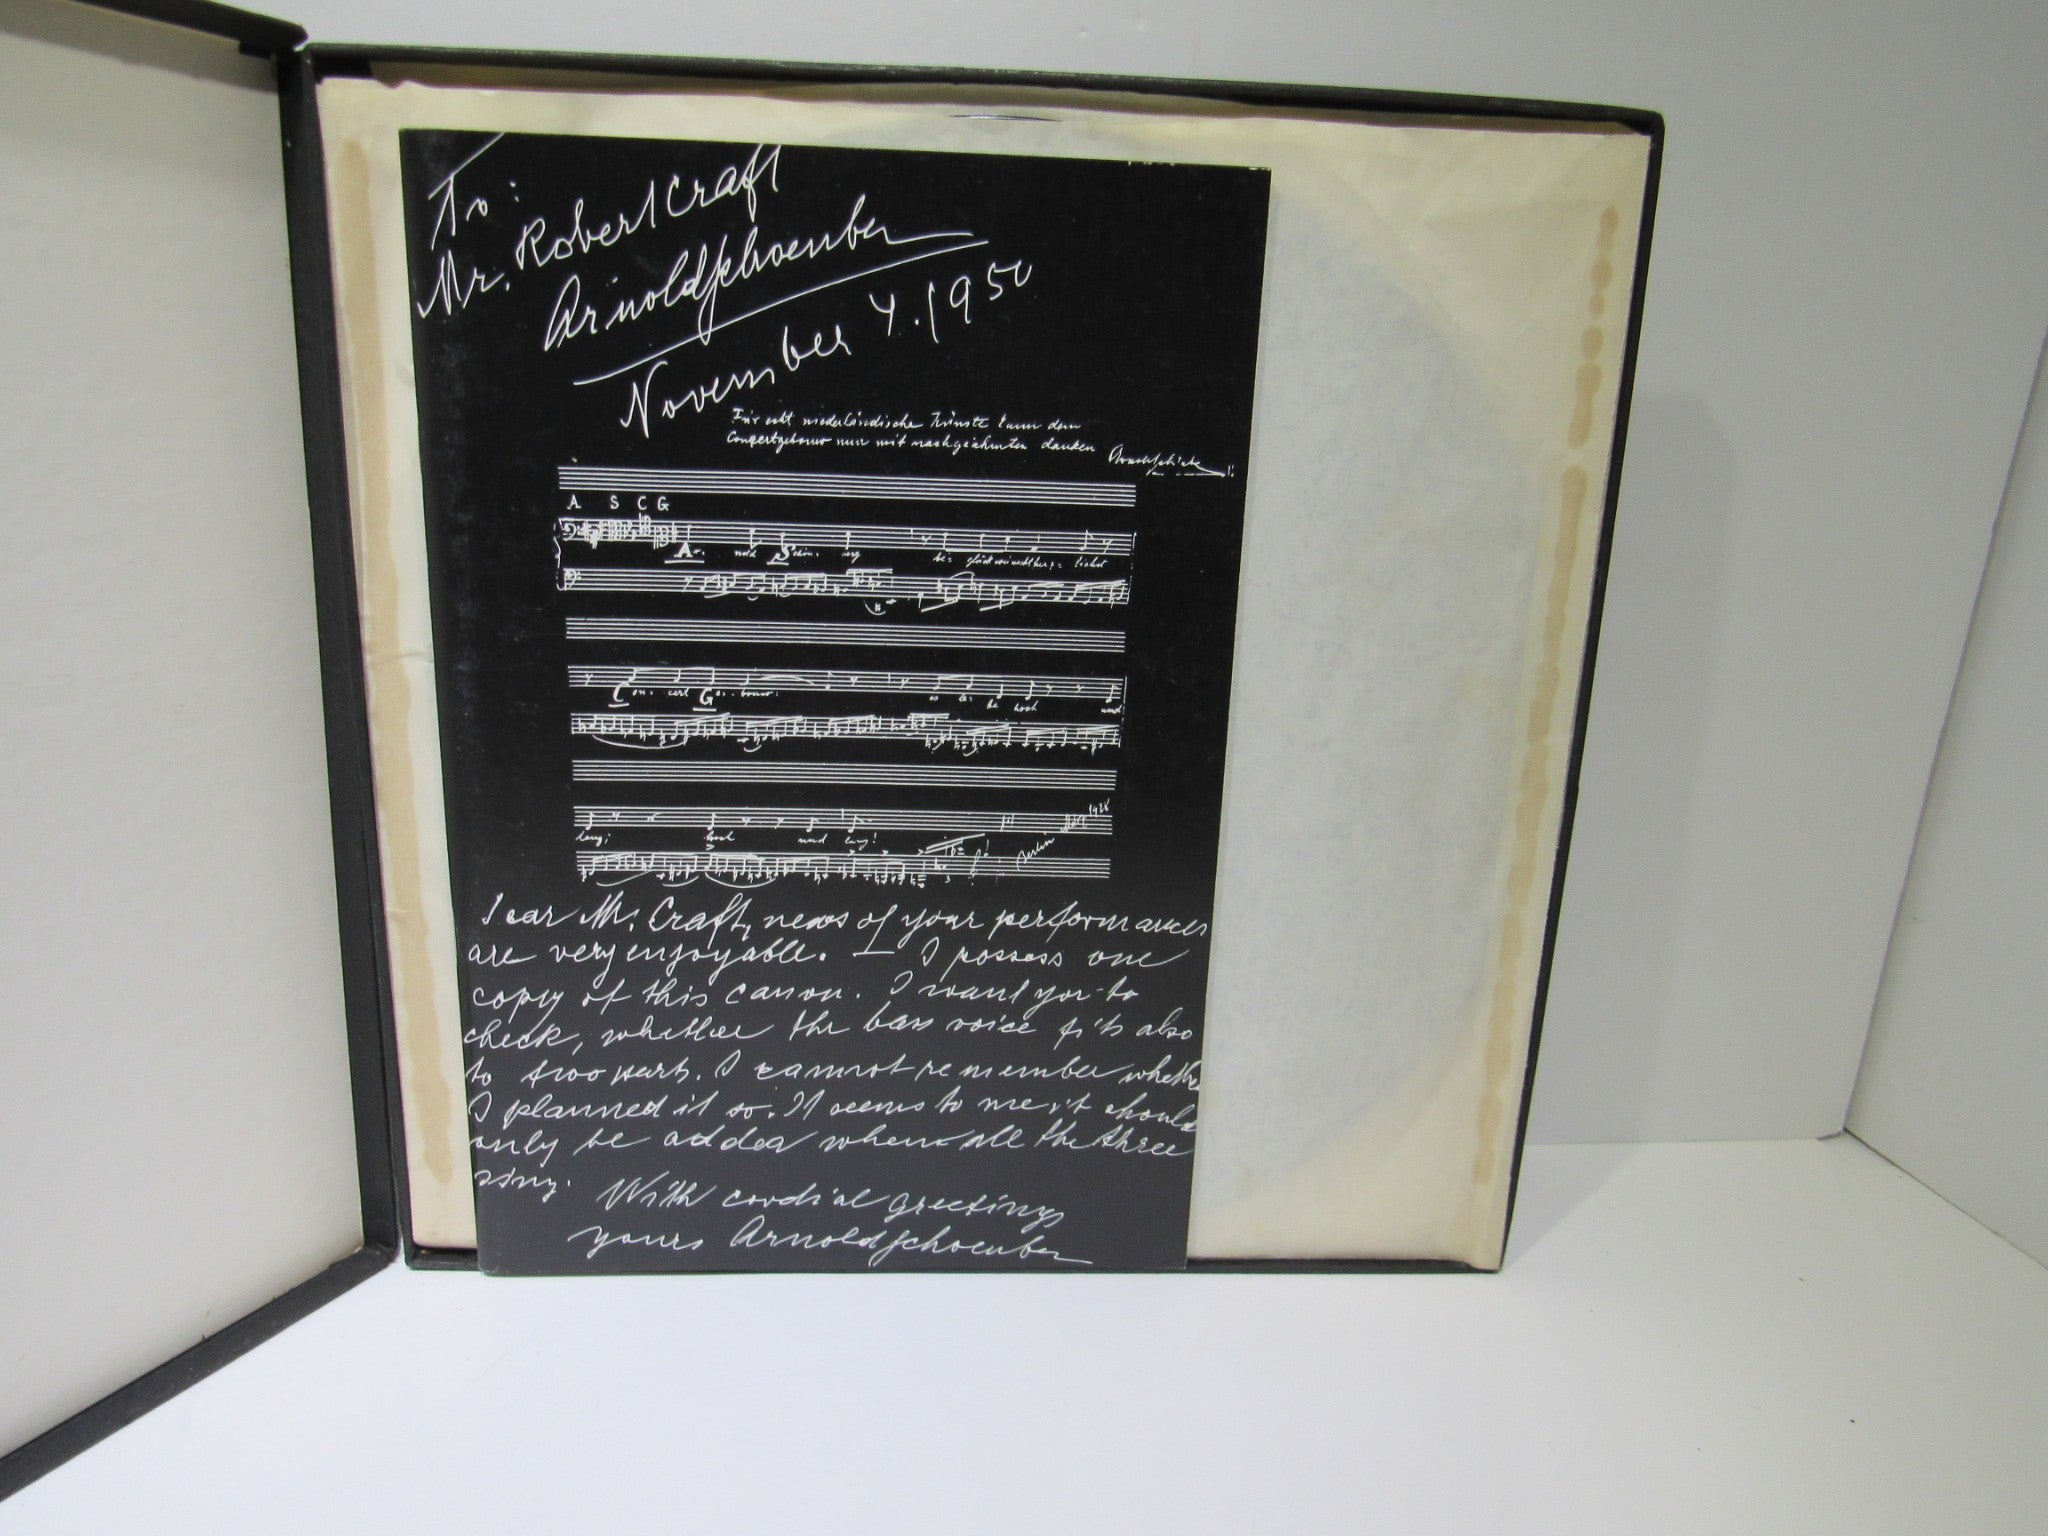 To:
Mr. Robert Craft
Arnold Schoenberg
November 4. 1950
niederländische Künste kann dem
Concertgebouw nur mit nachgeahmten danken
A S C G
Ar- nold Schön- berg be- lichst
Con- cert Ge- bouw: es le- be hoch und
lang; hoch und lang!
Berlin 1928
Dear Mr. Craft, news of your performances
are very enjoyable. — I possess one
copy of this canon. I want you to
check, whether the bass voice fits also
to two parts. I cannot remember whether
I planned it so. It seems to me, it should
only be added when all the three
sing.
With cordial greetings
yours Arnold Schoenberg